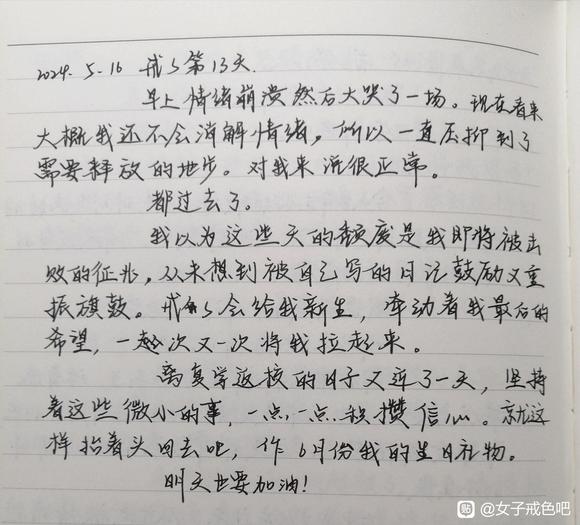 2024. 5. 16 戒s第13天.
早上情绪崩溃然后大哭了一场。现在看来
大概我还不会消解情绪，所以一直压抑到了
需要释放的地步。对我来说很正常。
都过去了。
我以为这些天的颓废是我即将被击
败的征兆，从未想到被自己写的日记鼓励又重
振旗鼓。戒s会给我新生，牵动着我最后的
希望，一次又一次将我拉起来。
离复学返校的日子又近了一天，坚持
着这些微小的事，一点一点积攒信心。就这
样抬着头回去吧，作6月份我的生日礼物。
明天也要加油！
贴 @女子戒色吧